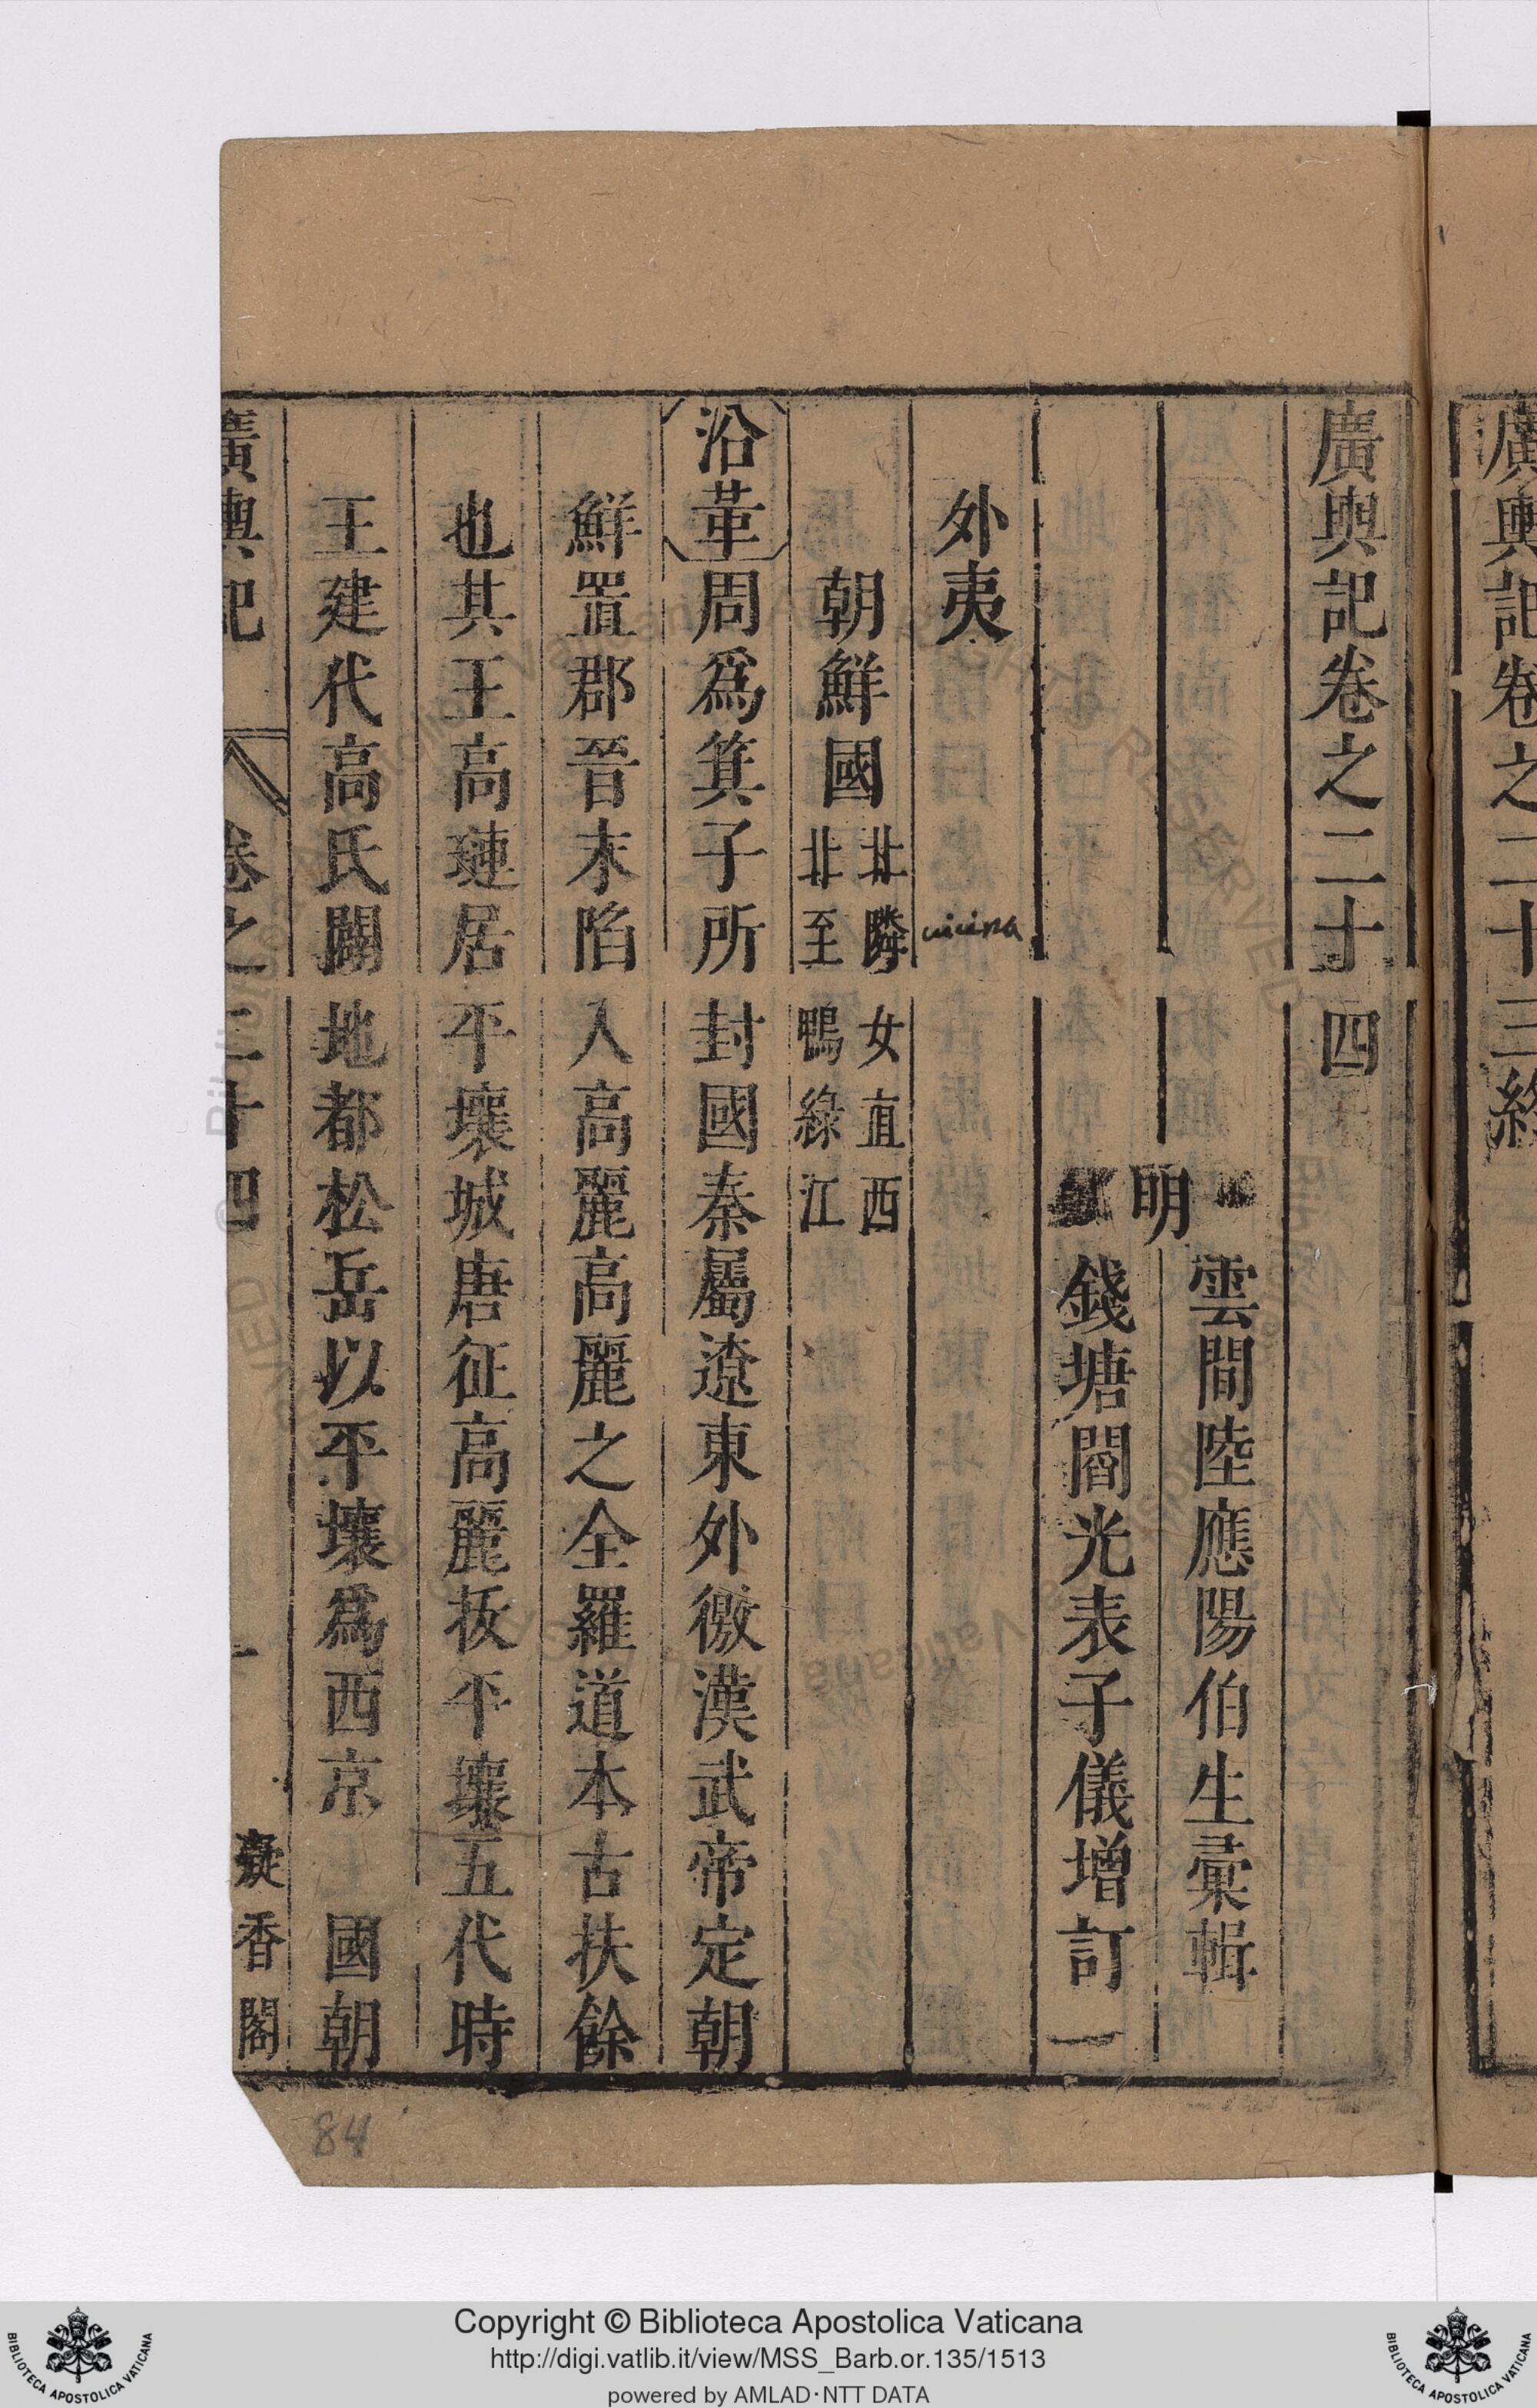 廣輿記卷之二十三終
廣輿記卷之二十四
明
雲間陸應陽伯生彙輯
錢塘閻光表子儀增訂
外夷
vicina
朝鮮國
北隣女直西
北至鴨綠江
沿革周爲箕子所封國秦屬遼東外徼漢武帝定朝
鮮置郡晉末陷入高麗高麗之全羅道本古扶餘
也其王高璉居平壤城唐征高麗拔平壤五代時
王建代高氏闢地都松岳以平壤爲西京 國朝
廣輿記 卷之二十四 一 凝香閣
84
Copyright © Biblioteca Apostolica Vaticana
http://digi.vatlib.it/view/MSS_Barb.or.135/1513
powered by AMLAD·NTT DATA
BIBLIOTECA APOSTOLICA VATICANA
BIBLIOTECA APOSTOLICA VATICANA